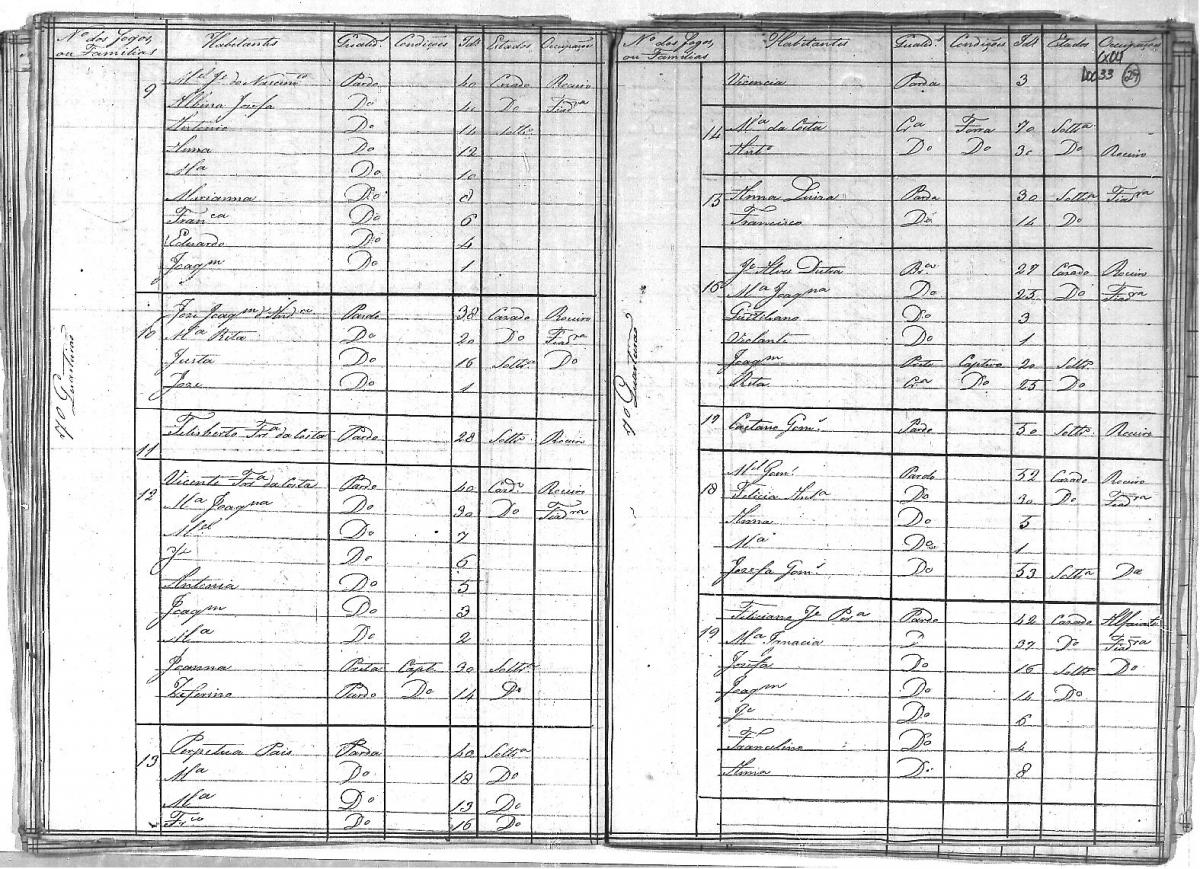 Nº dos Fogos, ou Famílias Habitantes Qualid.ª Condições Id.ᵉ Estados Occupações
7º Quarteirão
9 M.ᵉˡ J.ᵉ do Nascim.ᵗᵒ Pardo 40 Casado Roceiro
Albina Josefa Dº 40 Dº Fiad.ʳᵃ
Antonio Dº 14 Soltr.º
Anna Dº 12
M.ᵃ Dº 10
Marianna Dº 8
Fran.ᶜᵃ Dº 6
Eduardo Dº 4
Joaq.ᵐ Dº 1
10 José Joaq.ᵐ Pardo 38 Casado Roceiro
M.ᵃ Rita Dº 20 Dº Fiad.ʳᵃ
Justa Dº 16 Soltr.ª Dº
José Dº 1
11 Felisberto da Costa Pardo 28 Soltr.º Roceiro
12 Vicente da Costa Pardo 40 Casd.º Roceiro
M.ᵃ Joaq.ⁿᵃ Dº 30 Dº Fiad.ʳᵃ
M.ᵉˡ Dº 7
J.ᵉ Dº 6
Antonia Dº 5
Joaq.ᵐ Dº 3
M.ᵃ Dº 2
Joanna Preta Capt.ª 30 Soltr.ª
Zeferino Pardo Dº 14 Dº
13 Perpetua Pais Parda 40 Soltr.ª
M.ᵃ Dº 18 Dº
M.ᵃ Dº 13 Dº
Fr.ᶜᵒ Dº 16 Dº
Nº dos Fogos, ou Famílias Habitantes Qualid.ª Condições Id.ᵉ Estados Occupação
Cx04
Doc33 29
7º Quarteirão
Vicencia Parda 3
14 M.ᵃ da Costa Cr.ª Forra 70 Soltr.ª
Ant.º Dº Dº 30 Dº Roceiro
15 Anna Luiza Parda 30 Soltr.ª Fiad.ʳᵃ
Francisco Dº 14 Dº
16 J.ᵉ Alves Dutra Br.ᶜᵒ 27 Casado Roceiro
M.ᵃ Joaq.ⁿᵃ Dº 25 Dº Fiad.ʳᵃ
Dº 3
Violante Dº 1
Joaq.ᵐ Preto Captivo 20 Soltr.º
Rita Cr.ª Dº 25 Dº
17 Caetano Gom.ˢ Pardo 50 Soltr.º Roceiro
18 M.ᵉˡ Gom.ˢ Pardo 52 Casado Roceiro
Felicia Ant.ª Dº 30 Dº Fiad.ʳᵃ
Anna Dº 5
M.ᵃ Dº 1
Josefa Gom.ˢ Dº 53 Soltr.ª Dª
19 Feliciano J.ᵉ Pardo 42 Casado Alfaiate
M.ᵃ Ignacia Dº 37 Dº Fiad.ʳᵃ
Josefa Dº 16 Soltr.ª Dº
Joaq.ᵐ Dº 14 Dº
J.ᵉ Dº 6
Francelino Dº 4
Anna Dº 8